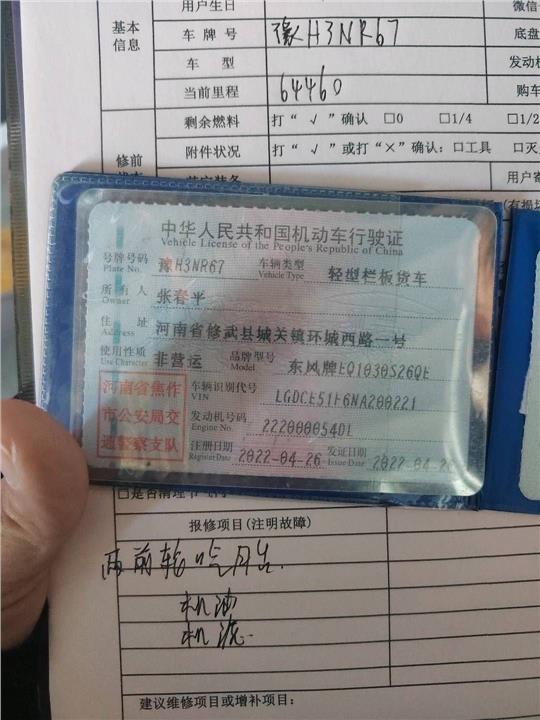 用户生日
微信
基本
信息
车 牌 号
豫H3NR67
底盘
车 型
发动机
当前里程
64460
购车
剩余燃料
打“ √ ”确认 □0 □1/4 □1/2
修前
附件状况
打“ √ ”或打“×”确认：□工具 □灭
用户寄
中华人民共和国机动车行驶证
Vehicle License of the People's Republic of China
号牌号码
Plate No.
豫H3NR67
车辆类型
Vehicle Type
轻型栏板货车
所 有 人
Owner
张春平
住 址
Address
河南省修武县城关镇环城西路一号
使用性质
Use Character
非营运
品牌型号
Model
东风牌EQ1030S26QE
河南省焦作
市公安局交
通警察支队
车辆识别代号
VIN
LGDCE51F6NA200221
发动机号码
Engine No.
22200005401
注册日期
Register Date
2022-04-26
发证日期
Issue Date
2022-04-26
报修项目(注明故障)
两前轮吃
机油
机滤
建议维修项目或增补项目：